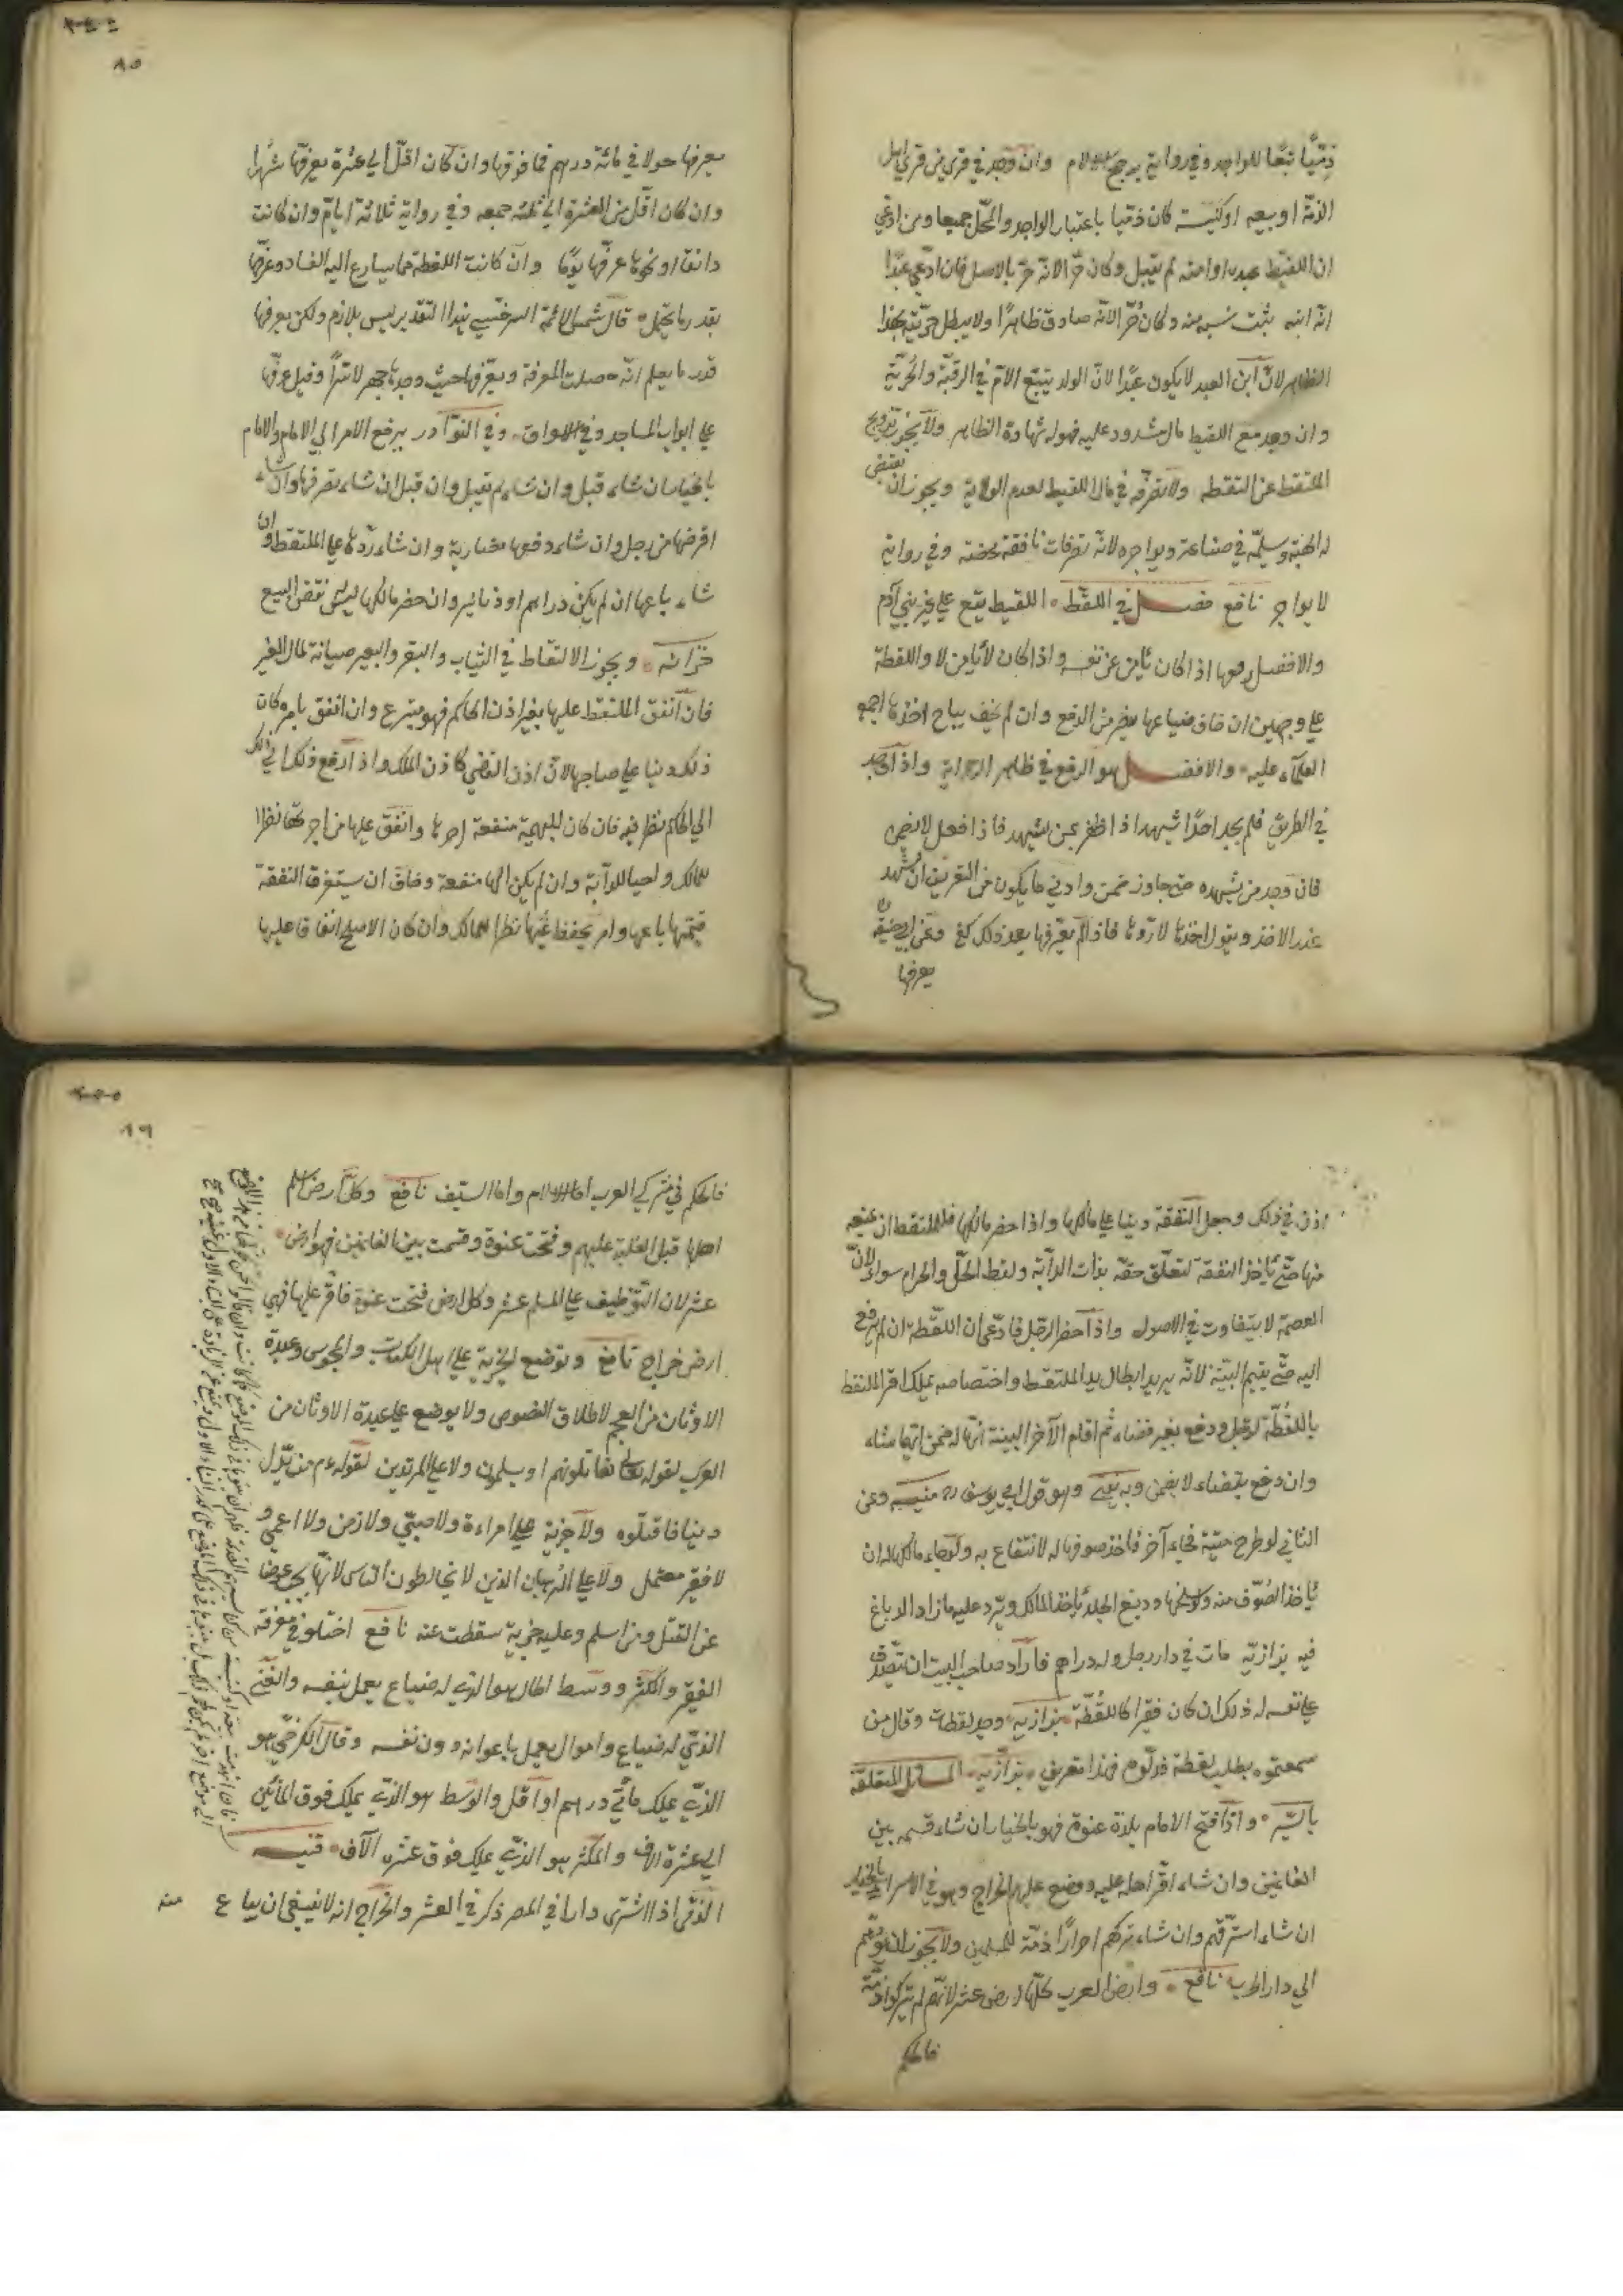 ذميا تبعا للواجد وفي رواية يرجح الاسلام وان وجد في قرية من قرى اهل
الذمة او بيعه او كنيسة كان ذميا باعتبار الواجد والمحل جميعا ومن ادعى
ان اللقيط عبده او امته لم يقبل وكان حرّا لانه حرّ بالاصل فان ادعى عبدٌ
انه ابنه يثبت نسبه منه وكان حُرّا لانّه صادق ظاهرًا ولا يبطل حريّته بهذا
الظاهر لانّ ابن العبد لا يكون عبدًا لانّ الولد يتبع الام في الرقيّة والحُريّة
وان وجد مع اللقيط مال مشدود عليه فهو له شهادة الظاهر ولا يجوز تزويج
الملتقط عن التقطه ولا تصرّفه في مال اللقيط لعدم الولاية ويجوز ان يقبض
له الهبة ويسلمه في صناعة ويواجره لانه تصرفات نافعة محضة وفي رواية
لا يواجر نافع فصل في اللقط اللقيط يقع على غير بني آدم
والافضل رفعها اذا كان يأمن عن نفسه واذا كان لا يأمن لا واللقطة
على وجهين ان خاف ضياعها يفرض الرفع وان لم يخف يباح اخذها اجمع
العلماء عليه والافضل هو الرفع في ظاهر الرواية واذا وجد
في الطريق فلم يجد احدًا يشهد اذا ظفر بمن يشهد فاذا فعل لا يضمن
فان وجد من يشهده حتى جاوز ضمن وادنى ما يكون من التعريف ان يشهد
عند الاخذ ويقول اخذتها لاردّها فاذا لم يعرّفها بعد ذلك كفى وعن ابي حنيفة
يعرفها
٨٥
يعرفها حولا في مائة درهم فما فوقها وان كان اقلّ الى عشرة يعرفها شهرا
وان كان اقلّ من العشرة الى ثلثه جمعه وفي رواية ثلاثة ايام وان كانت
دانقا او نحوها عرفها يومًا وان كانت اللقطة مما يسارع اليه الفساد وعرفها
بقدر ما يحتمل قال شمس الائمة السرخسي هذا التقدير ليس بلازم ولكن يعرفها
قدر ما يعلم انّه حصلت المعرفة ويعرّفها حيث وجدها جهر لا سرًّا وقيل عرفها
على ابواب المساجد وفي الاسواق وفي النوادر يرفع الامر الى الامام والامام
بالخيار ان شاء قبل وان شاء لم يقبل وان قبل ان شاء تصرفها وان شاء
اقرضها من رجل وان شاء دفعها مضاربة وان شاء ردّها على الملتقط وان
شاء باعها ان لم يكن دراهم او دنانير وان حضر مالكها ليس نقض البيع
خزانه ويجوز الالتقاط في الثياب والبقر والبعير صيانة لمال الغير
فان انفق الملتقط عليها بغير اذن الحاكم فهو متبرع وان انفق بامره كان
ذلك دينا على صاحبها لانّ اذن القاضي كاذن المالك واذا ارفع ذلك
الى الحاكم نظر فيه فان كان للبهيمة منفعة اجرها وانفق عليها من اجرتها نظرا
للمالك واحيا للدابة وان لم يكن لها منفعة وخاف ان يستغرق النفقة
قيمتها باعها وامر بحفظ ثمنها نظرا للمالك وان كان الاصلح انفاقا عليها
اذن في ذلك وجعل النفقة دينا على مالكها واذا حضر مالكها فللملتقط ان يمنعه
منها حتى يأخذ النفقة لتعلّق حقه بذات الدابّة ولقط الحلّ والحرام سواء لانّ
العصمة لا يتفاوت في الاصول واذا حضر الرّجل فادّعى ان اللقطة ان لم يرفع
اليه حتى يقيم البيّنة لانّه يريد ابطال يد الملتقط واختصاصه بملك اقر الملتقط
باللقطة لرجل ودفع بغير قضاء ثم اقام الآخر البينة انّها له ضمن ايّهما شاء
وان دفع بقضاء لا يضمن وبه يفتى وهو قول ابي يوسف ره منيه وعن
الثاني لو طرح ميتة فجاء آخر فاخذ صوفها له لانتفاع به ولو جاء مالكها له ان
يأخذ الصّوف منه ولو سلخها ودبغ الجلد يأخذ المالك ويرد عليه ما زاد الدباغ
فيه بزازيّه مات في دار رجل وله دراهم فاراد صاحب البيت ان يتصدق
على نفسه له ذلك ان كان فقيرا كاللقطة بزازيه وجد لقطة وقال من
سمعتموه يطلب لقطة فدلّوه فهذا تعريف بزازيه المسائل المتعلقة
بالسير واذا فتح الامام بلدة عنوة فهو بالخيار ان شاء قسمه بين
الغانمين وان شاء اقرّ اهله عليه ووضع عليهم الخراج وهو في الاسرى بالخيار
ان شاء استرقهم وان شاء تركهم احرارًا ذمّة للمسلمين ولا يجوز ان يردّهم
الى دار الحرب نافع وارض العرب كلّها ارض عشر لانهم لم يتركوا ذمّة
فالحكم
٨٦
فالحكم في مشركي العرب اما الاسلام واما السّيف نافع وكل ارض اسلم
اهلها قبل الغلبة عليهم وفتحت عنوة وقسمت بين الغانمين فهو ارض
عشر لان التوظيف على المسلم عشر وكل ارض فتحت عنوة فاقر عليها فهي
ارض خراج نافع وتوضع الجزية على اهل الكتاب والمجوس وعبدة
الاوثان من العجم لاطلاق النصوص ولا يوضع على عبدة الاوثان من
العرب لقوله تعالى تقاتلونهم او يسلمون ولا على المرتدين لقوله عم من بدّل
دينه فاقتلوه ولا جزية على امراءة ولا صبيّ ولا زمن ولا اعمى و
لا فقير معتمل ولا على الرهبان الذين لا يخالطون الناس لانّها يجب عوضا
عن القتل ومن اسلم وعليه جزية سقطت عنه نافع اختلفوا في معرفة
الفقير والمكثر ووسط الحال هو الذي له ضياع يعمل بنفسه والغني
الذي له ضياع واموال يعمل باعوانه دون نفسه وقال الكرخيّ هو
الذي يملك مأتي درهم او اقل والوسط هو الذي يملك فوق المأتين
الى عشرة الاف والمكثر هو الذي يملك فوق عشرة الآف قنيه
الذمّي اذا اشترى دارا في المصر ذكر في العشر والخراج انه لا ينبغي ان يباع منه